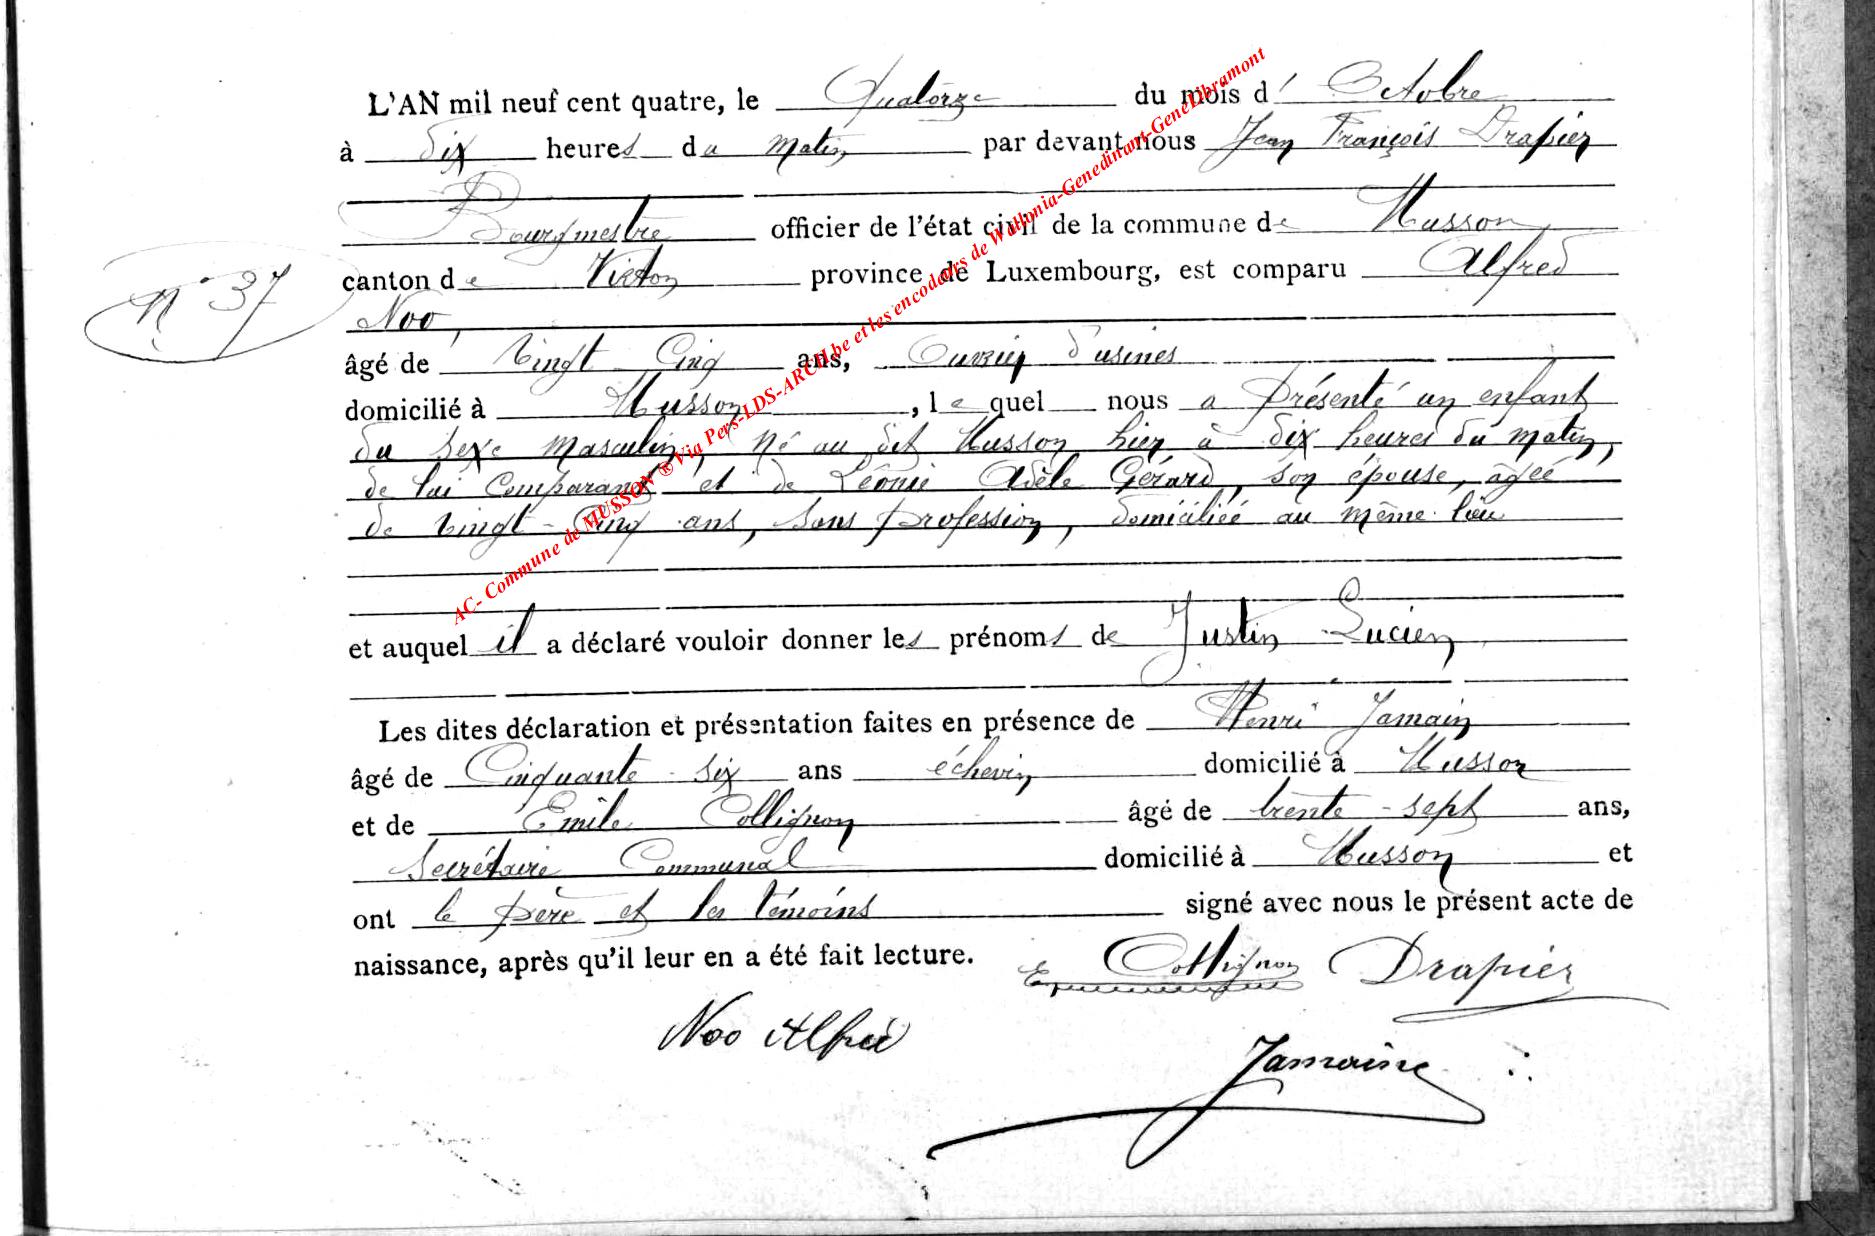 L'AN mil neuf cent quatre, le Quatorze du mois d' Octobre
à dix heures du matin par devant nous Jean François Drapier
Bourgmestre officier de l'état civil de la commune de Musson
N° 37
canton de Virton province de Luxembourg, est comparu Alfred
Noo,
âgé de Vingt Cinq ans, Ouvrier d'usines
domicilié à Musson, lequel nous a présenté un enfant
du sexe masculin, né au dit Musson hier à dix heures du matin,
de lui comparant et de Léonie Adèle Gérard, son épouse, âgée
de vingt-cinq ans, sans profession, domiciliée au même lieu
et auquel il a déclaré vouloir donner les prénoms de Justin Lucien
Les dites déclaration et présentation faites en présence de Henri Jamain
âgé de Cinquante-six ans échevin domicilié à Musson
et de Emile Collignon âgé de trente-sept ans,
Secrétaire Communal domicilié à Musson et
ont le père et les témoins signé avec nous le présent acte de
naissance, après qu'il leur en a été fait lecture.
E Collignon Drapier
Noo Alfred
Jamain
AC- Commune de MUSSON ® Via Pers-LDS-ARCH.be et les encodeurs de Wallonia-Genedinant-GeneLibramont